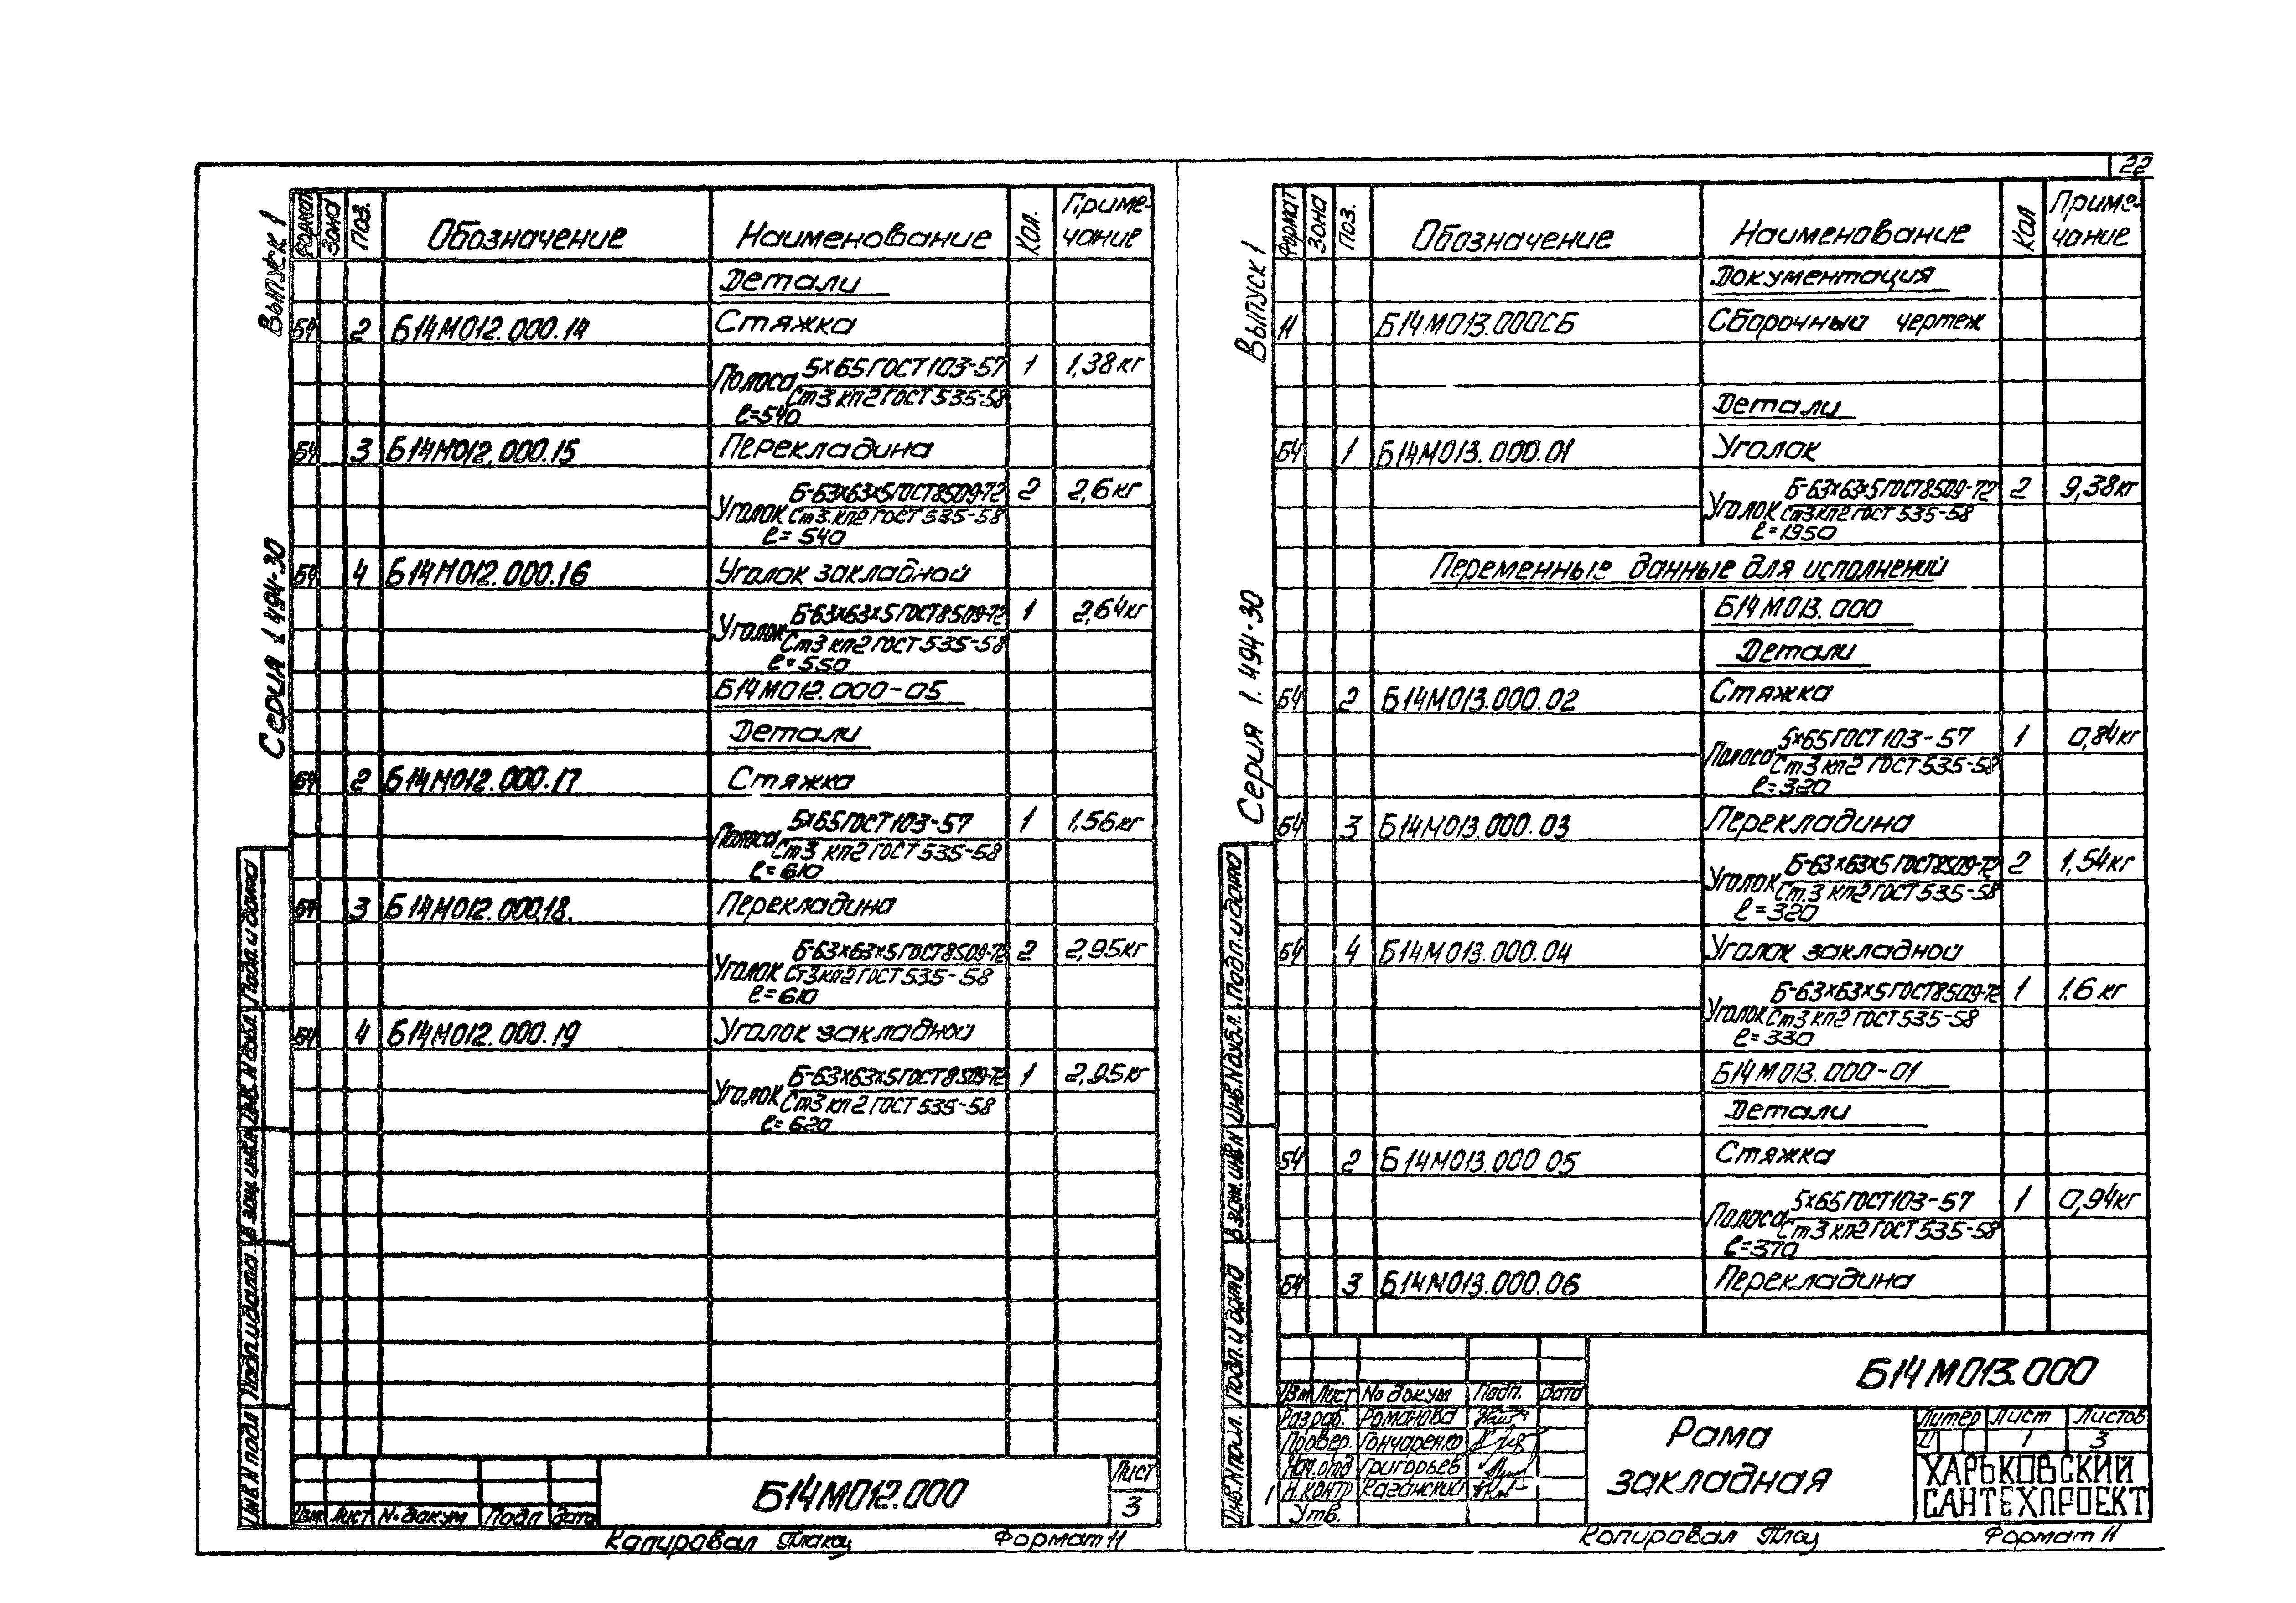 22
Выпуск 1
Серия 1.494-30
Формат Зона Поз. Обозначение Наименование Кол. Приме-чание
Детали
Б4 2 Б14М012.000.14 Стяжка
Полоса 5×65 ГОСТ 103-57 1 1,38 кг
Ст3 кп2 ГОСТ 535-58
ℓ=540
Б4 3 Б14М012.000.15 Перекладина
Уголок Б-63×63×5 ГОСТ 8509-72 2 2,6 кг
Ст3.кп2 ГОСТ 535-58
ℓ=540
Б4 4 Б14М012.000.16 Уголок закладной
Уголок Б-63×63×5 ГОСТ 8509-72 1 2,64 кг
Ст3 кп2 ГОСТ 535-58
ℓ=550
Б14М012.000-05
Детали
Б4 2 Б14М012.000.17 Стяжка
Полоса 5×65 ГОСТ 103-57 1 1,56 кг
Ст3 кп2 ГОСТ 535-58
ℓ=610
Б4 3 Б14М012.000.18. Перекладина
Уголок Б-63×63×5 ГОСТ 8509-72 2 2,95 кг
Ст3 кп2 ГОСТ 535-58
ℓ=610
Б4 4 Б14М012.000.19 Уголок закладной
Уголок Б-63×63×5 ГОСТ 8509-72 1 2,95 кг
Ст3 кп2 ГОСТ 535-58
ℓ=620
Инв.N подл Подп.и дата Взам.инв.N Инв.N дубл. Подп.и дата
Изм Лист № докум Подп дата
Б14М012.000
Лист
3
Копировал Формат 11
Выпуск 1
Серия 1.494-30
Формат Зона Поз. Обозначение Наименование Кол Приме-чание
Документация
11 Б14М013.000СБ Сборочный чертеж
Детали
Б4 1 Б14М013.000.01 Уголок
Уголок Б-63×63×5 ГОСТ 8509-72 2 9,38 кг
Ст3 кп2 ГОСТ 535-58
ℓ=1950
Переменные данные для исполнений
Б14М013.000
Детали
Б4 2 Б14М013.000.02 Стяжка
Полоса 5×65 ГОСТ 103-57 1 0,84 кг
Ст3 кп2 ГОСТ 535-58
ℓ=320
Б4 3 Б14М013.000.03 Перекладина
Уголок Б-63×63×5 ГОСТ 8509-72 2 1,54 кг
Ст.3 кп2 ГОСТ 535-58
ℓ=320
Б4 4 Б14М013.000.04 Уголок закладной
Уголок Б-63×63×5 ГОСТ 8509-72 1 1.6 кг
Ст3 кп2 ГОСТ 535-58
ℓ=330
Б14М013.000-01
Детали
Б4 2 Б14М013.000 05 Стяжка
Полоса 5×65 ГОСТ 103-57 1 0,94 кг
Ст3 кп2 ГОСТ 535-58
ℓ=370
Б4 3 Б14М013.000.06 Перекладина
Инв.N подл. Подп.и дата Взам.инв.N Инв.N дубл. Подп.и дата
Изм Лист № докум Подп. дата
Разраб. Романова
Провер. Гончаренко
Нач.отд Григорьев
1 Н.контр Каганский
Утв.
Б14М013.000
Рама
закладная
Литер Лист Листов
И 1 3
ХАРЬКОВСКИЙ
САНТЕХПРОЕКТ
Копировал Формат 11